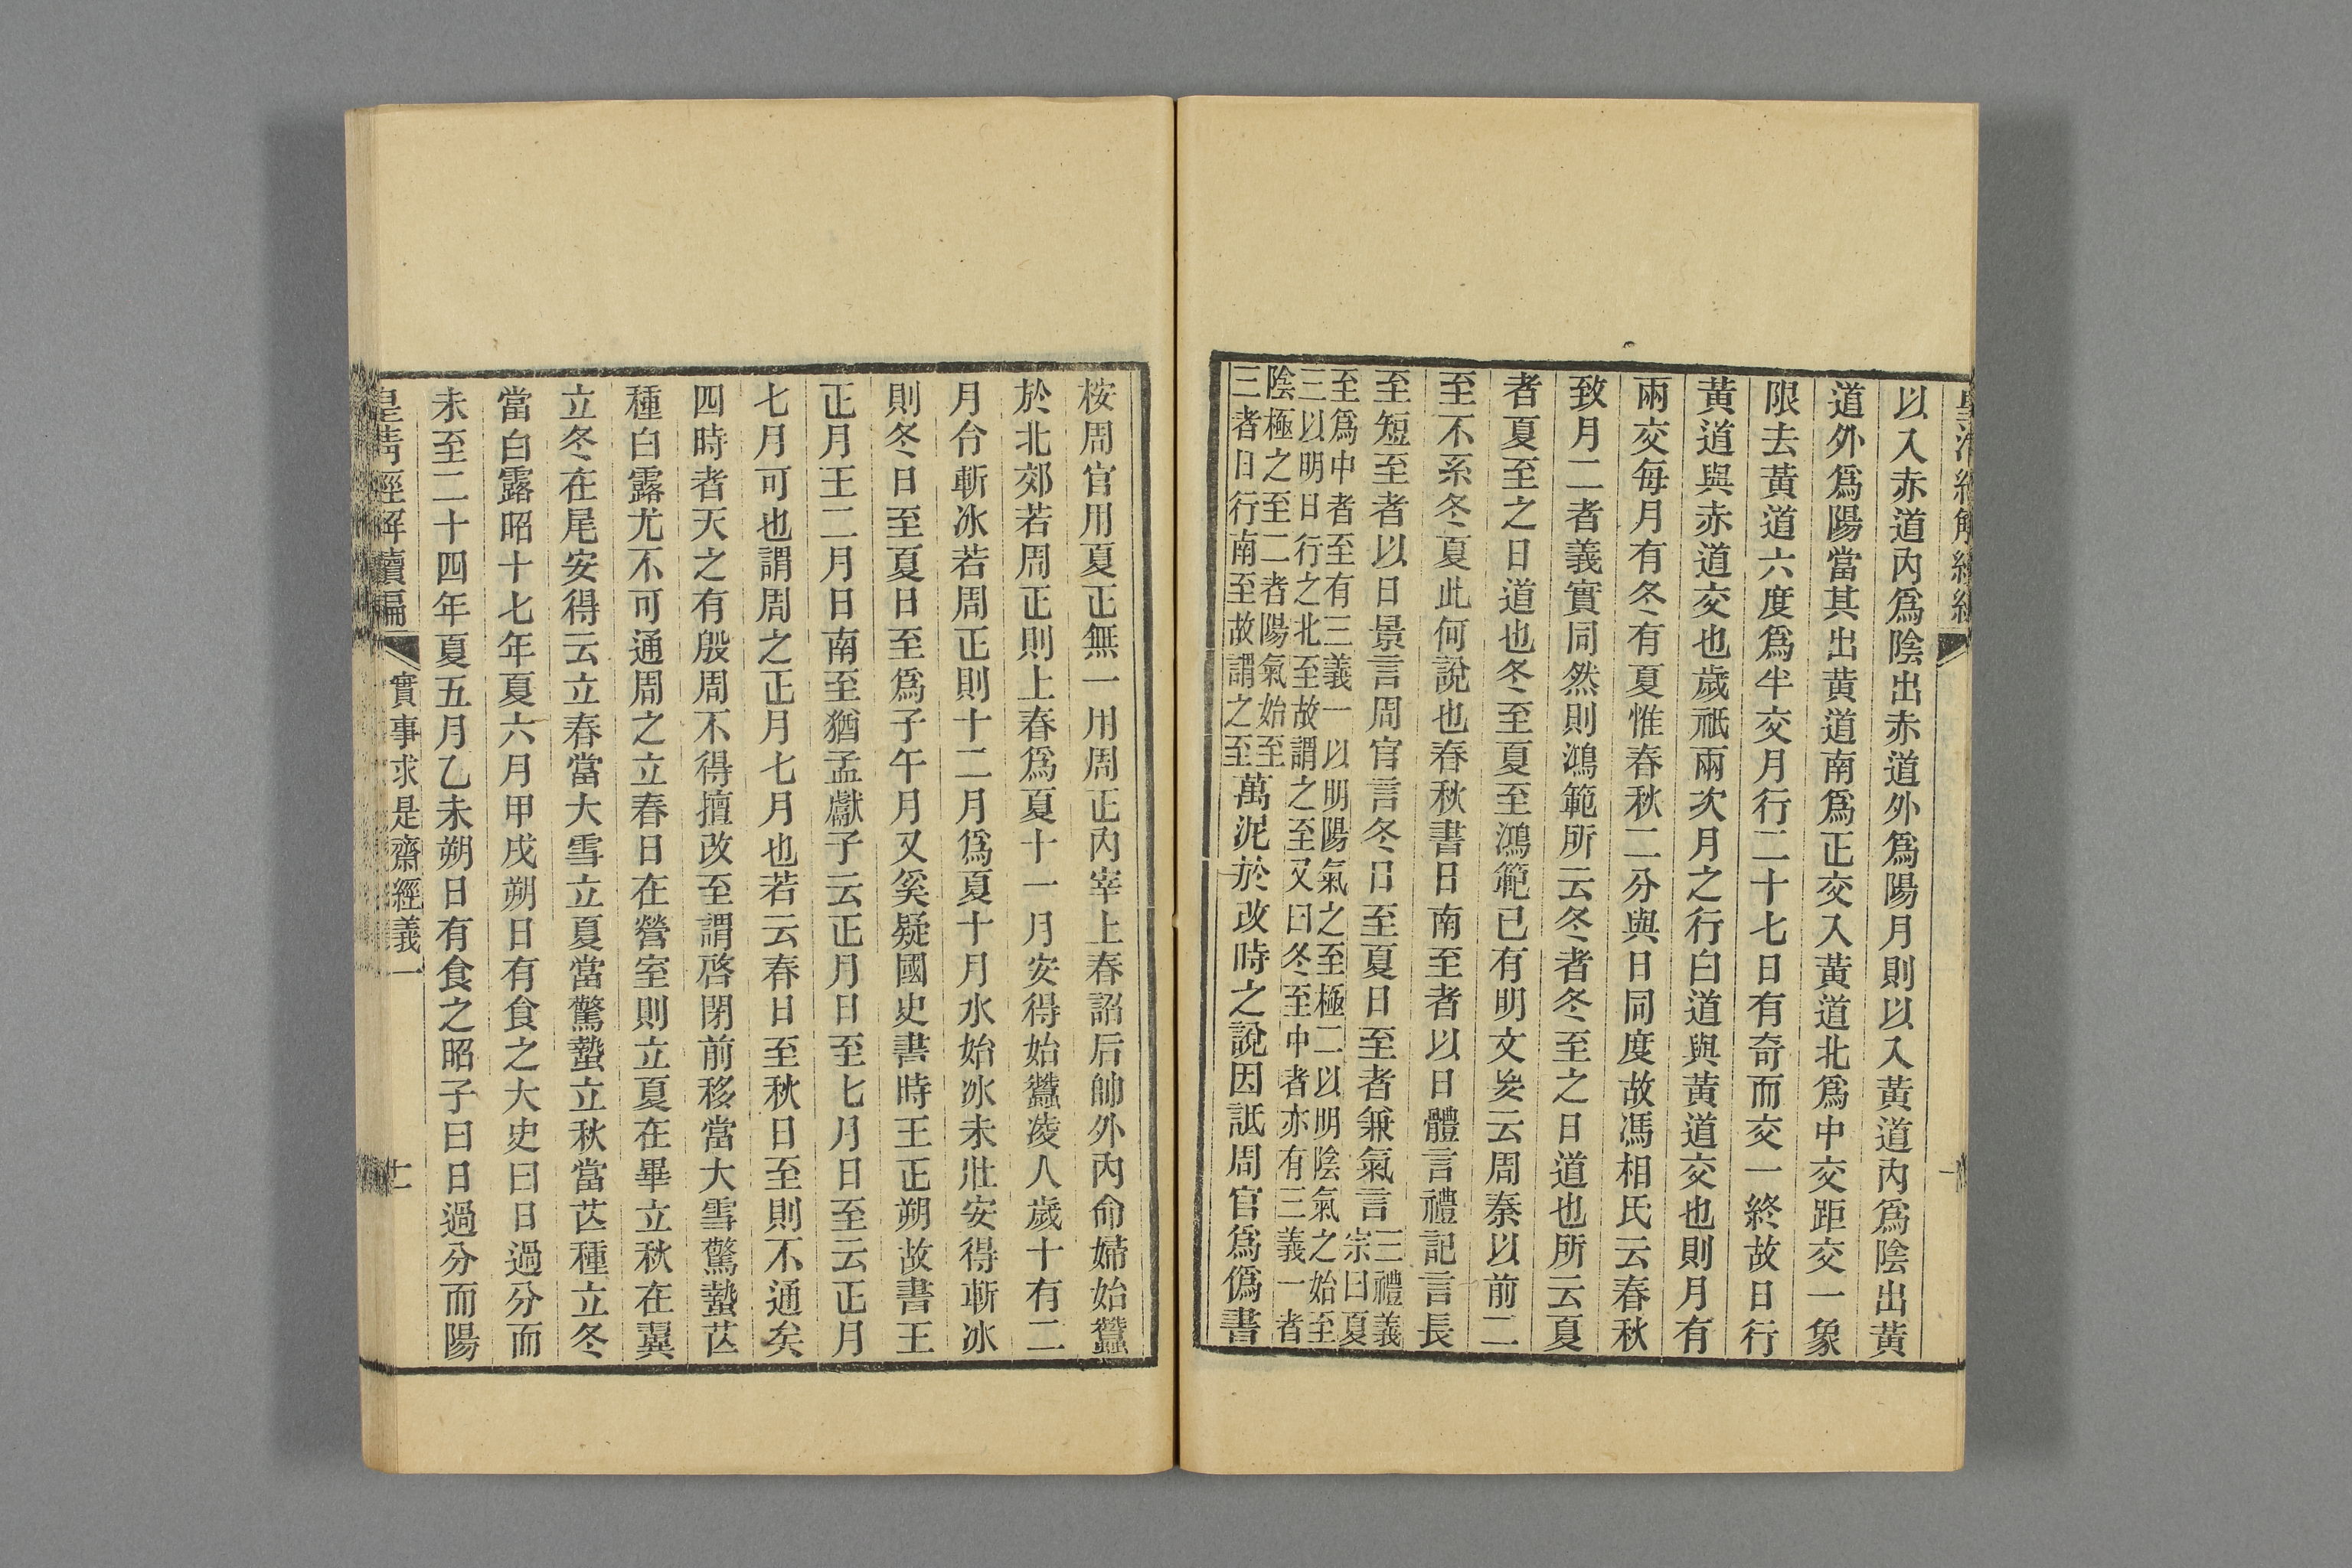 皇清經解續編
以入赤道內爲陰出赤道外爲陽月則以入黃道內爲陰出黃
道外爲陽當其出黃道南爲正交入黃道北爲中交距交一象
限去黃道六度爲半交月行二十七日有奇而交一終故日行
黃道與赤道交也歲祇兩次月之行白道與黃道交也則月有
兩交每月有冬有夏惟春秋二分與日同度故馮相氏云春秋
致月二者義實同然則鴻範所云冬者冬至之日道也所云夏
者夏至之日道也冬至夏至鴻範已有明文矣云周秦以前二
至不系冬夏此何說也春秋書日南至者以日體言禮記言長
至短至者以日景言周官言冬日至夏日至者兼氣言三禮義
宗曰夏
至爲中者至有三義一以明陽氣之至極二以明陰氣之始至
三以明日行之北至故謂之至又曰冬至中者亦有三義一者
陰極之至二者陽氣始至
三者日行南至故謂之至萬泥於改時之說因詆周官爲僞書
桉周官用夏正無一用周正內宰上春詔后帥外內命婦始蠶
於北郊若周正則上春爲夏十一月安得始蠶凌人歲十有二
月令斬冰若周正則十二月爲夏十月水始冰未壯安得斬冰
則冬日至夏日至爲子午月又奚疑國史書時王正朔故書王
正月王二月日南至猶孟獻子云正月日至七月日至云正月
七月可也謂周之正月七月也若云春日至秋日至則不通矣
四時者天之有殷周不得擅改至謂啓閉前移當大雪驚蟄芒
種白露尤不可通周之立春日在營室則立夏在畢立秋在翼
立冬在尾安得云立春當大雪立夏當驚蟄立秋當芒種立冬
當白露昭十七年夏六月甲戌朔日有食之大史曰日過分而
未至二十四年夏五月乙未朔日有食之昭子曰日過分而陽
皇清經解續編
實事求是齋經義一
十